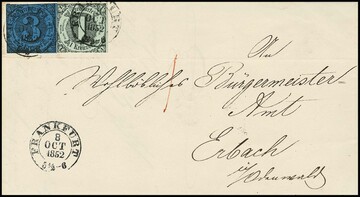 3
FRANKFURT
OCT
1852
An
Wohllöbliches Bürgermeister-
Amt
Erbach
i/Odenwald
FRANKFURT
8
OCT
1852
5½-6